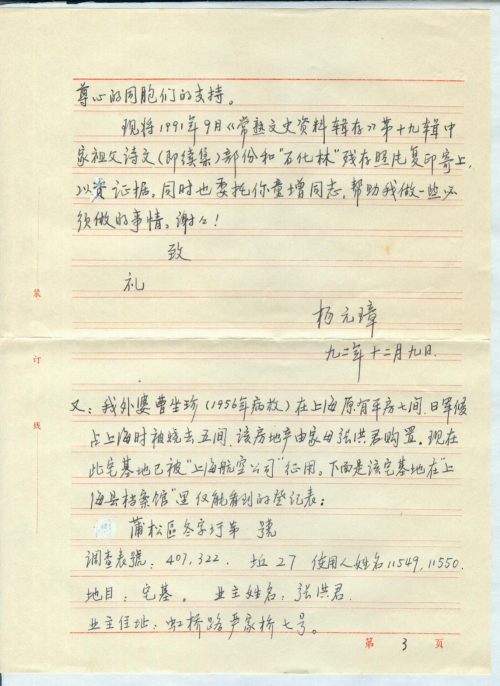 尊心的同胞们的支持。
现将1991年9月《常熟文史资料辑存》第十九辑中
家祖父诗文(即续集)部份和"石化林"残存照片复印寄上,
以资证据。同时也委托你童增同志,帮助我做一些必
须做的事情。谢々!
致
礼
杨元璋
九二年十二月九日.
又:我外婆曹坐珍(1956年病故)在上海原有平房七间.日军侵
占上海时被烧去五间,该房地产由家母张洪君购置。现在
此宅基地已被"上海航空公司"征用。下面是该宅基地在"上
海县档案馆"里仅能看到的登记表:
蒲松區冬字圩第 號
调查表號:407,322. 坵27 使用人姓名11549,11550.
地目:宅基。 业主姓名:张洪君.
业主住址:虹桥路严家桥七号。
装
订
线
第 3 页